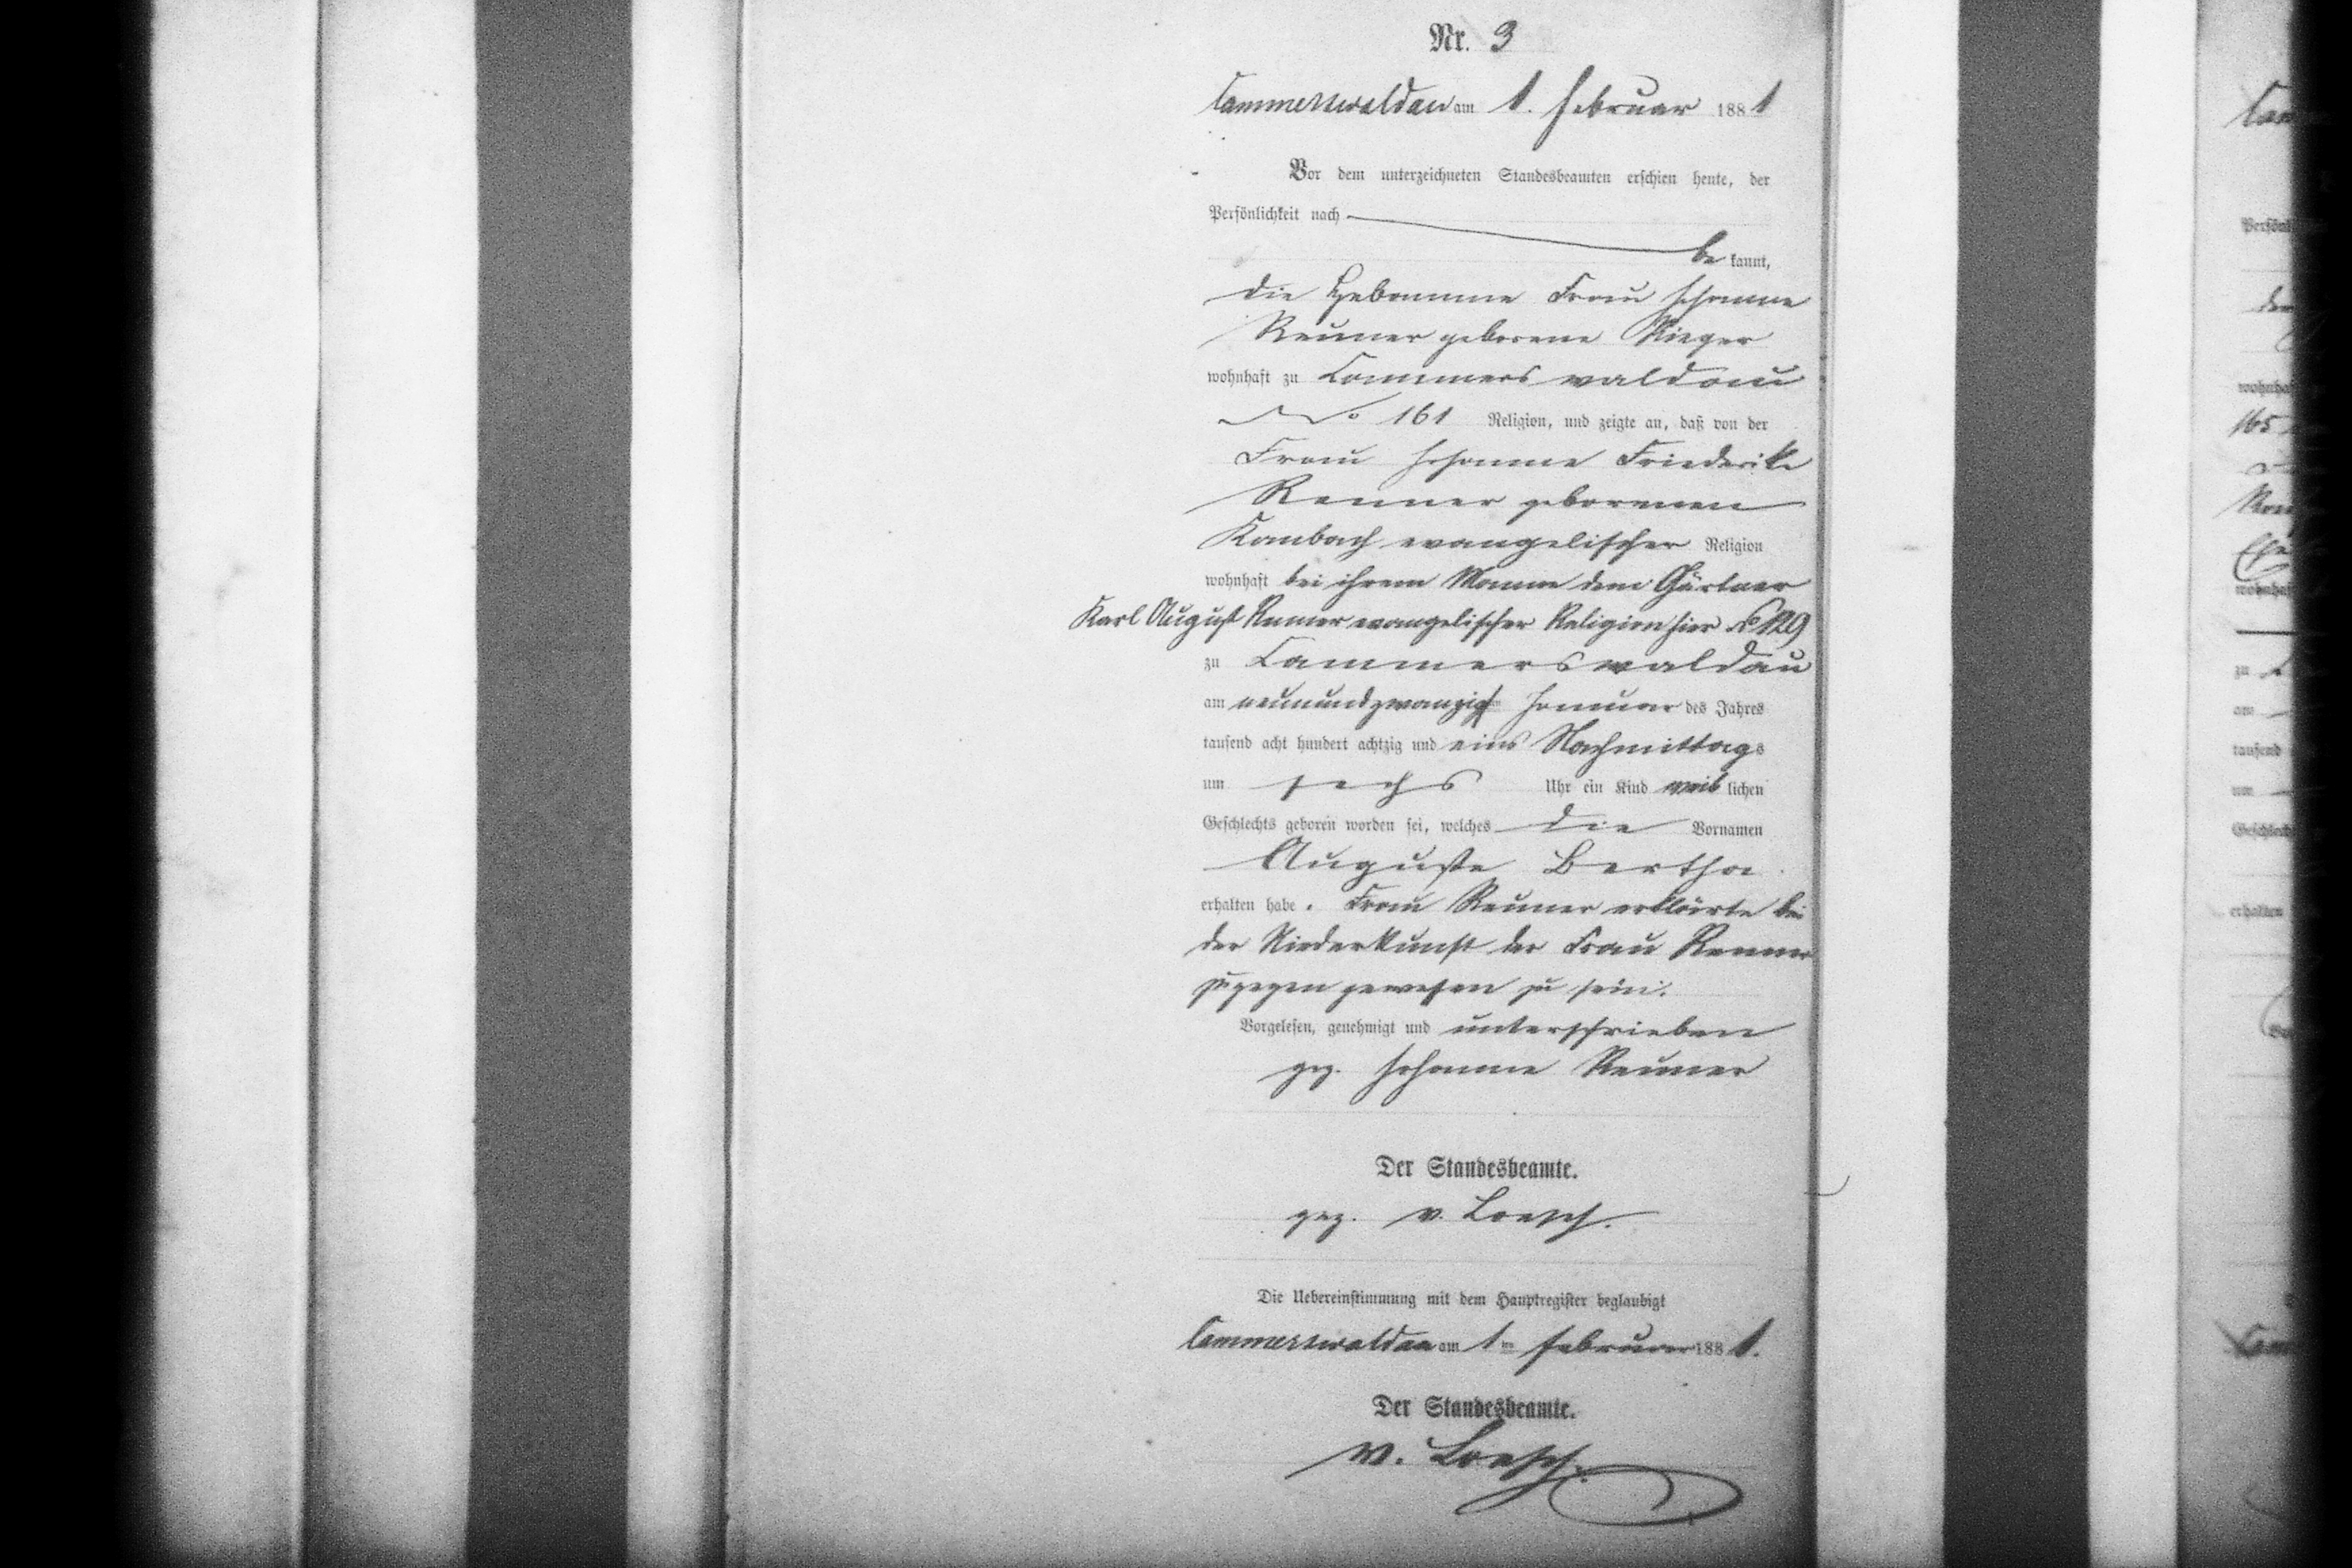 Nr. 3
Cammerswaldau am 1. Februar 1881
Vor dem unterzeichneten Standesbeamten erschien heute, der
Persönlichkeit nach
be kannt,
die Hebamme Frau Johanne
Reuner geborene Rieger
wohnhaft zu Cammerswaldau
No 161 Religion, und zeigte an, daß von der
Frau Johanne Friederike
Renner geborenen
Kambach evangelischer Religion
wohnhaft bei ihrem Manne dem Gärtner
Karl August Renner evangelischer Religion hier No 129
zu Cammerswaldau
am neunundzwanzigsten Januar des Jahres
tausend acht hundert achtzig und eins Nachmittags
um sechs Uhr ein Kind weiblichen
Geschlechts geboren worden sei, welches die Vornamen
Auguste Bertha
erhalten habe. Frau Reuner erklärte bei
der Niederkunft der Frau Renner
zugegen gewesen zu sein.
Vorgelesen, genehmigt und unterschrieben
gez. Johanne Reuner
Der Standesbeamte.
gez. v. Loesch.
Die Uebereinstimmung mit dem Hauptregister beglaubigt
Cammerswaldau am 1ten Februar 1881.
Der Standesbeamte.
v. Loesch.